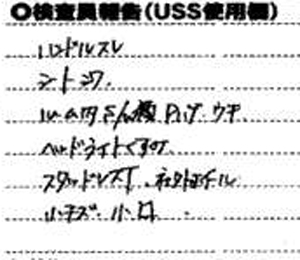 ○検査員報告(USS使用欄)
ハンドルスレ
シートシワ
ルーム内 ハゲ ウキ
ヘッドライトくすみ
スタッドレスT、社外ホイール
小キズ 小凹